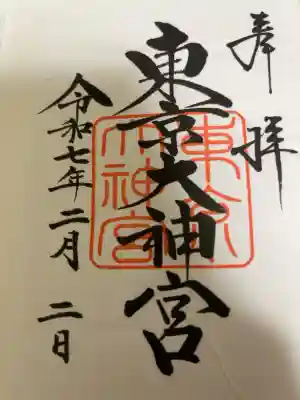 奉拝
東京大神宮
東京大神宮
令和七年二月二日